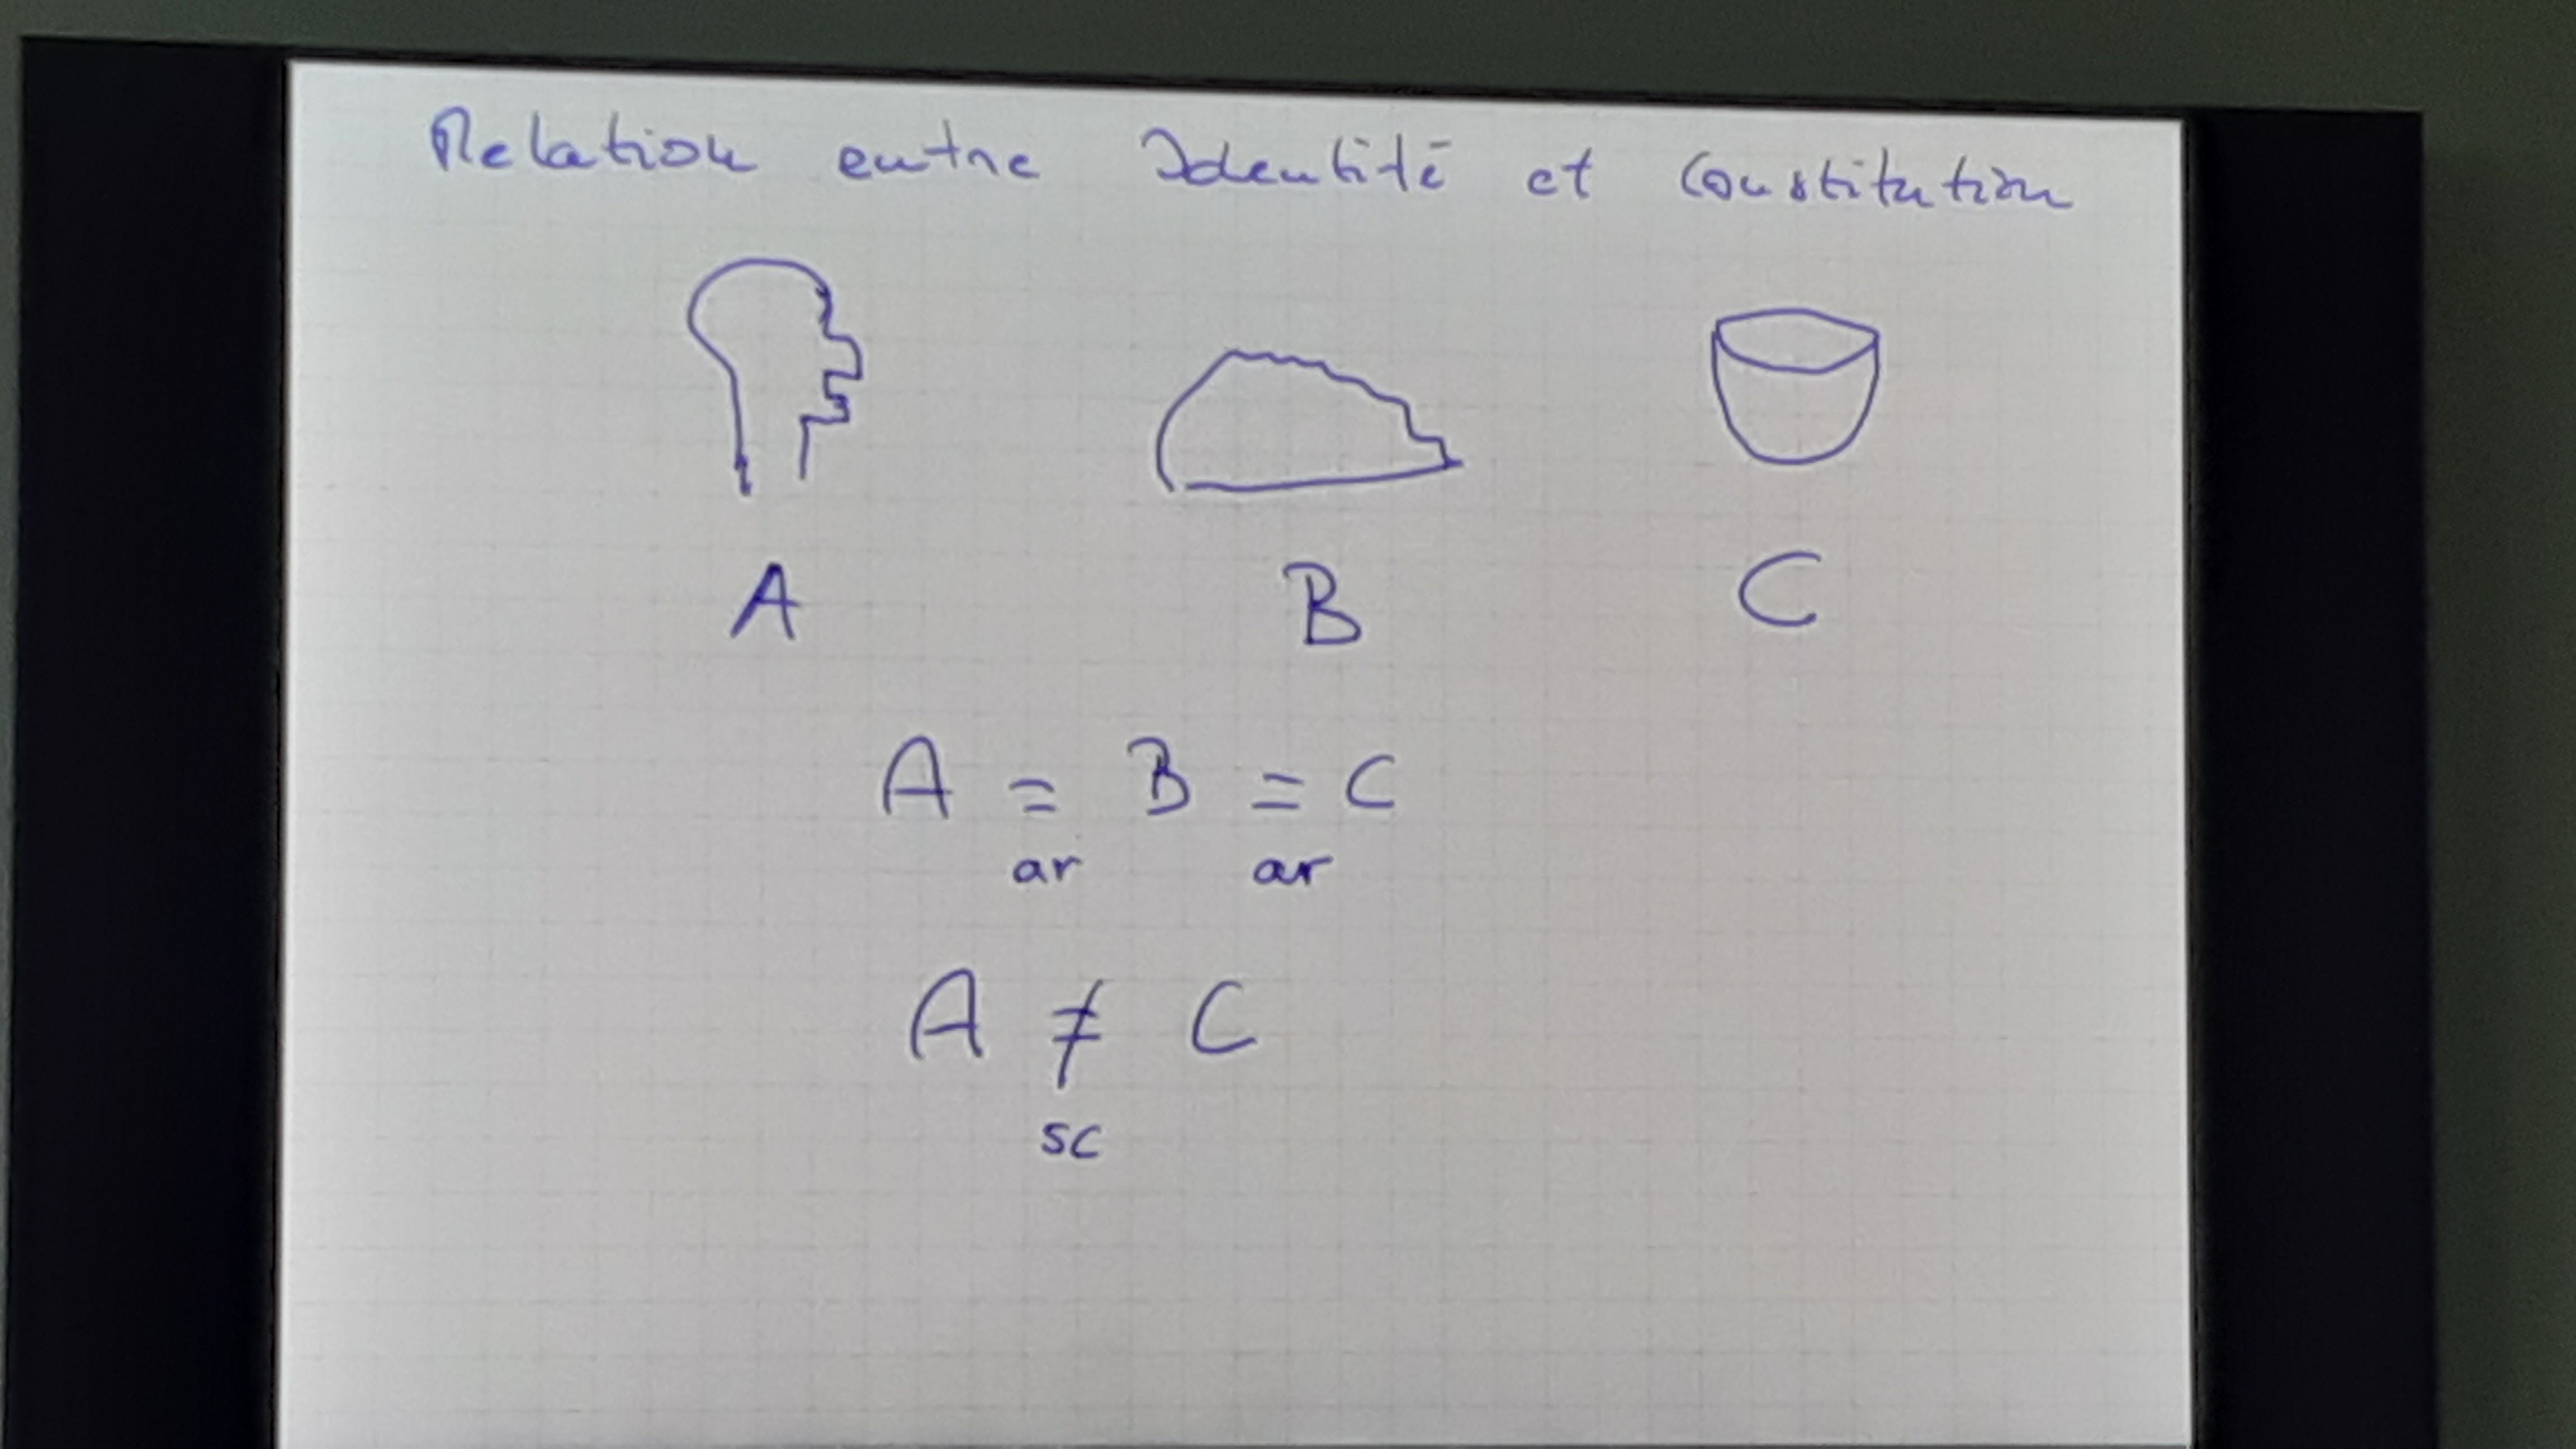 Relation entre Identité et Constitution
A B C
A = B = C
ar ar
A ≠ C
sc